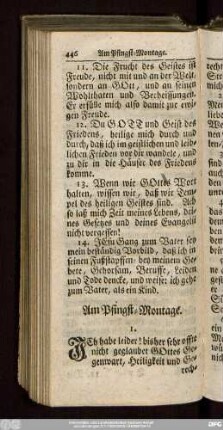 446 Am Pfingst-Montage.
11. Die Frucht des Geistes ist
Freude, nicht mit und an der Welt,
sondern an GOtt, und an seinen
Wohlthaten und Verheissungen.
Er erfülle mich also damit zur ewi-
gen Freude.
12. Du GOTT und Geist des
Friedens, heilige mich durch und
durch, daß ich im geistlichen und leib-
lichen Frieden vor dir wandele, und
zu dir in die Häuser des Friedens
komme.
13. Wenn wir GOttes Wort
halten, wissen wir, daß wir Tem-
pel des heiligen Geistes sind. Ach
so laß mich Zeit meines Lebens, dei-
nes Gesetzes und deines Evangelii
nicht vergessen!
14. JEsu Gang zum Vater sey
mein beständig Vorbild, daß ich in
seinen Fußstapffen bey meinem Ge-
bete, Gehorsam, Beruffe, Leiden
und Tode dencke, und weiß er ich gehe
zum Vater, als ein Kind.
Am Pfingst-Montage.
1.
ICh habe leider! bisher sehr offte
nicht geglaubet GOttes Ge-
genwart, Heiligkeit und Ge-
rech-